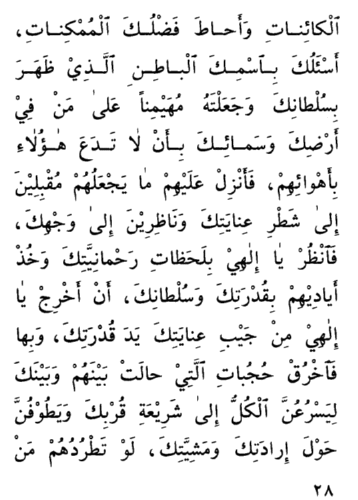 ٱلْكائِنـاتِ وَأَحـاطَ فَضْلُـكَ ٱلْمُمْكِنـاتِ،
أَسْئَلُكَ بِـٱسْمِـكَ ٱلْبـاطِـنِ ٱلَّـذِيْ ظَهَـرَ
بِسُلْطانِكَ وَجَعَلْتَهُ مُهَيْمِناً عَلىٰ مَنْ فِيْ
أَرْضِكَ وَسَمـائِـكَ بِـأَنْ لٰا تَـدَعَ هٰـؤُلٰاءِ
بِأَهْوائِهِمْ، فَأَنْزِلْ عَلَيْهِمْ مٰا يَجْعَلُهُمْ مُقْبِلِيْنَ
إِلىٰ شَطْرِ عِنايَتِكَ وَناظِرِيْنَ إِلىٰ وَجْهِكَ،
فَٱنْظُرْ يٰا إِلٰهِيْ بِلَحَظاتِ رَحْمانِيَّتِكَ وَخُذْ
أَيادِيْهِمْ بِقُدْرَتِكَ وَسُلْطانِكَ، أَنْ أَخْرِجْ يٰا
إِلٰهِيْ مِنْ جَيْبِ عِنايَتِكَ يَدَ قُدْرَتِكَ، وَبِها
فَٱخْرُقْ حُجُباتِ ٱلَّتِيْ حالَتْ بَيْنَهُمْ وَبَيْنَكَ
لِيَسْرُعُنَّ ٱلْكُلُّ إِلىٰ شَرِيْعَةِ قُرْبِكَ وَيَطُوْفُنَّ
حَوْلَ إِرادَتِكَ وَمَشِيَّتِكَ، لَوْ تَطْرُدُهُمْ مَنْ
٢٨